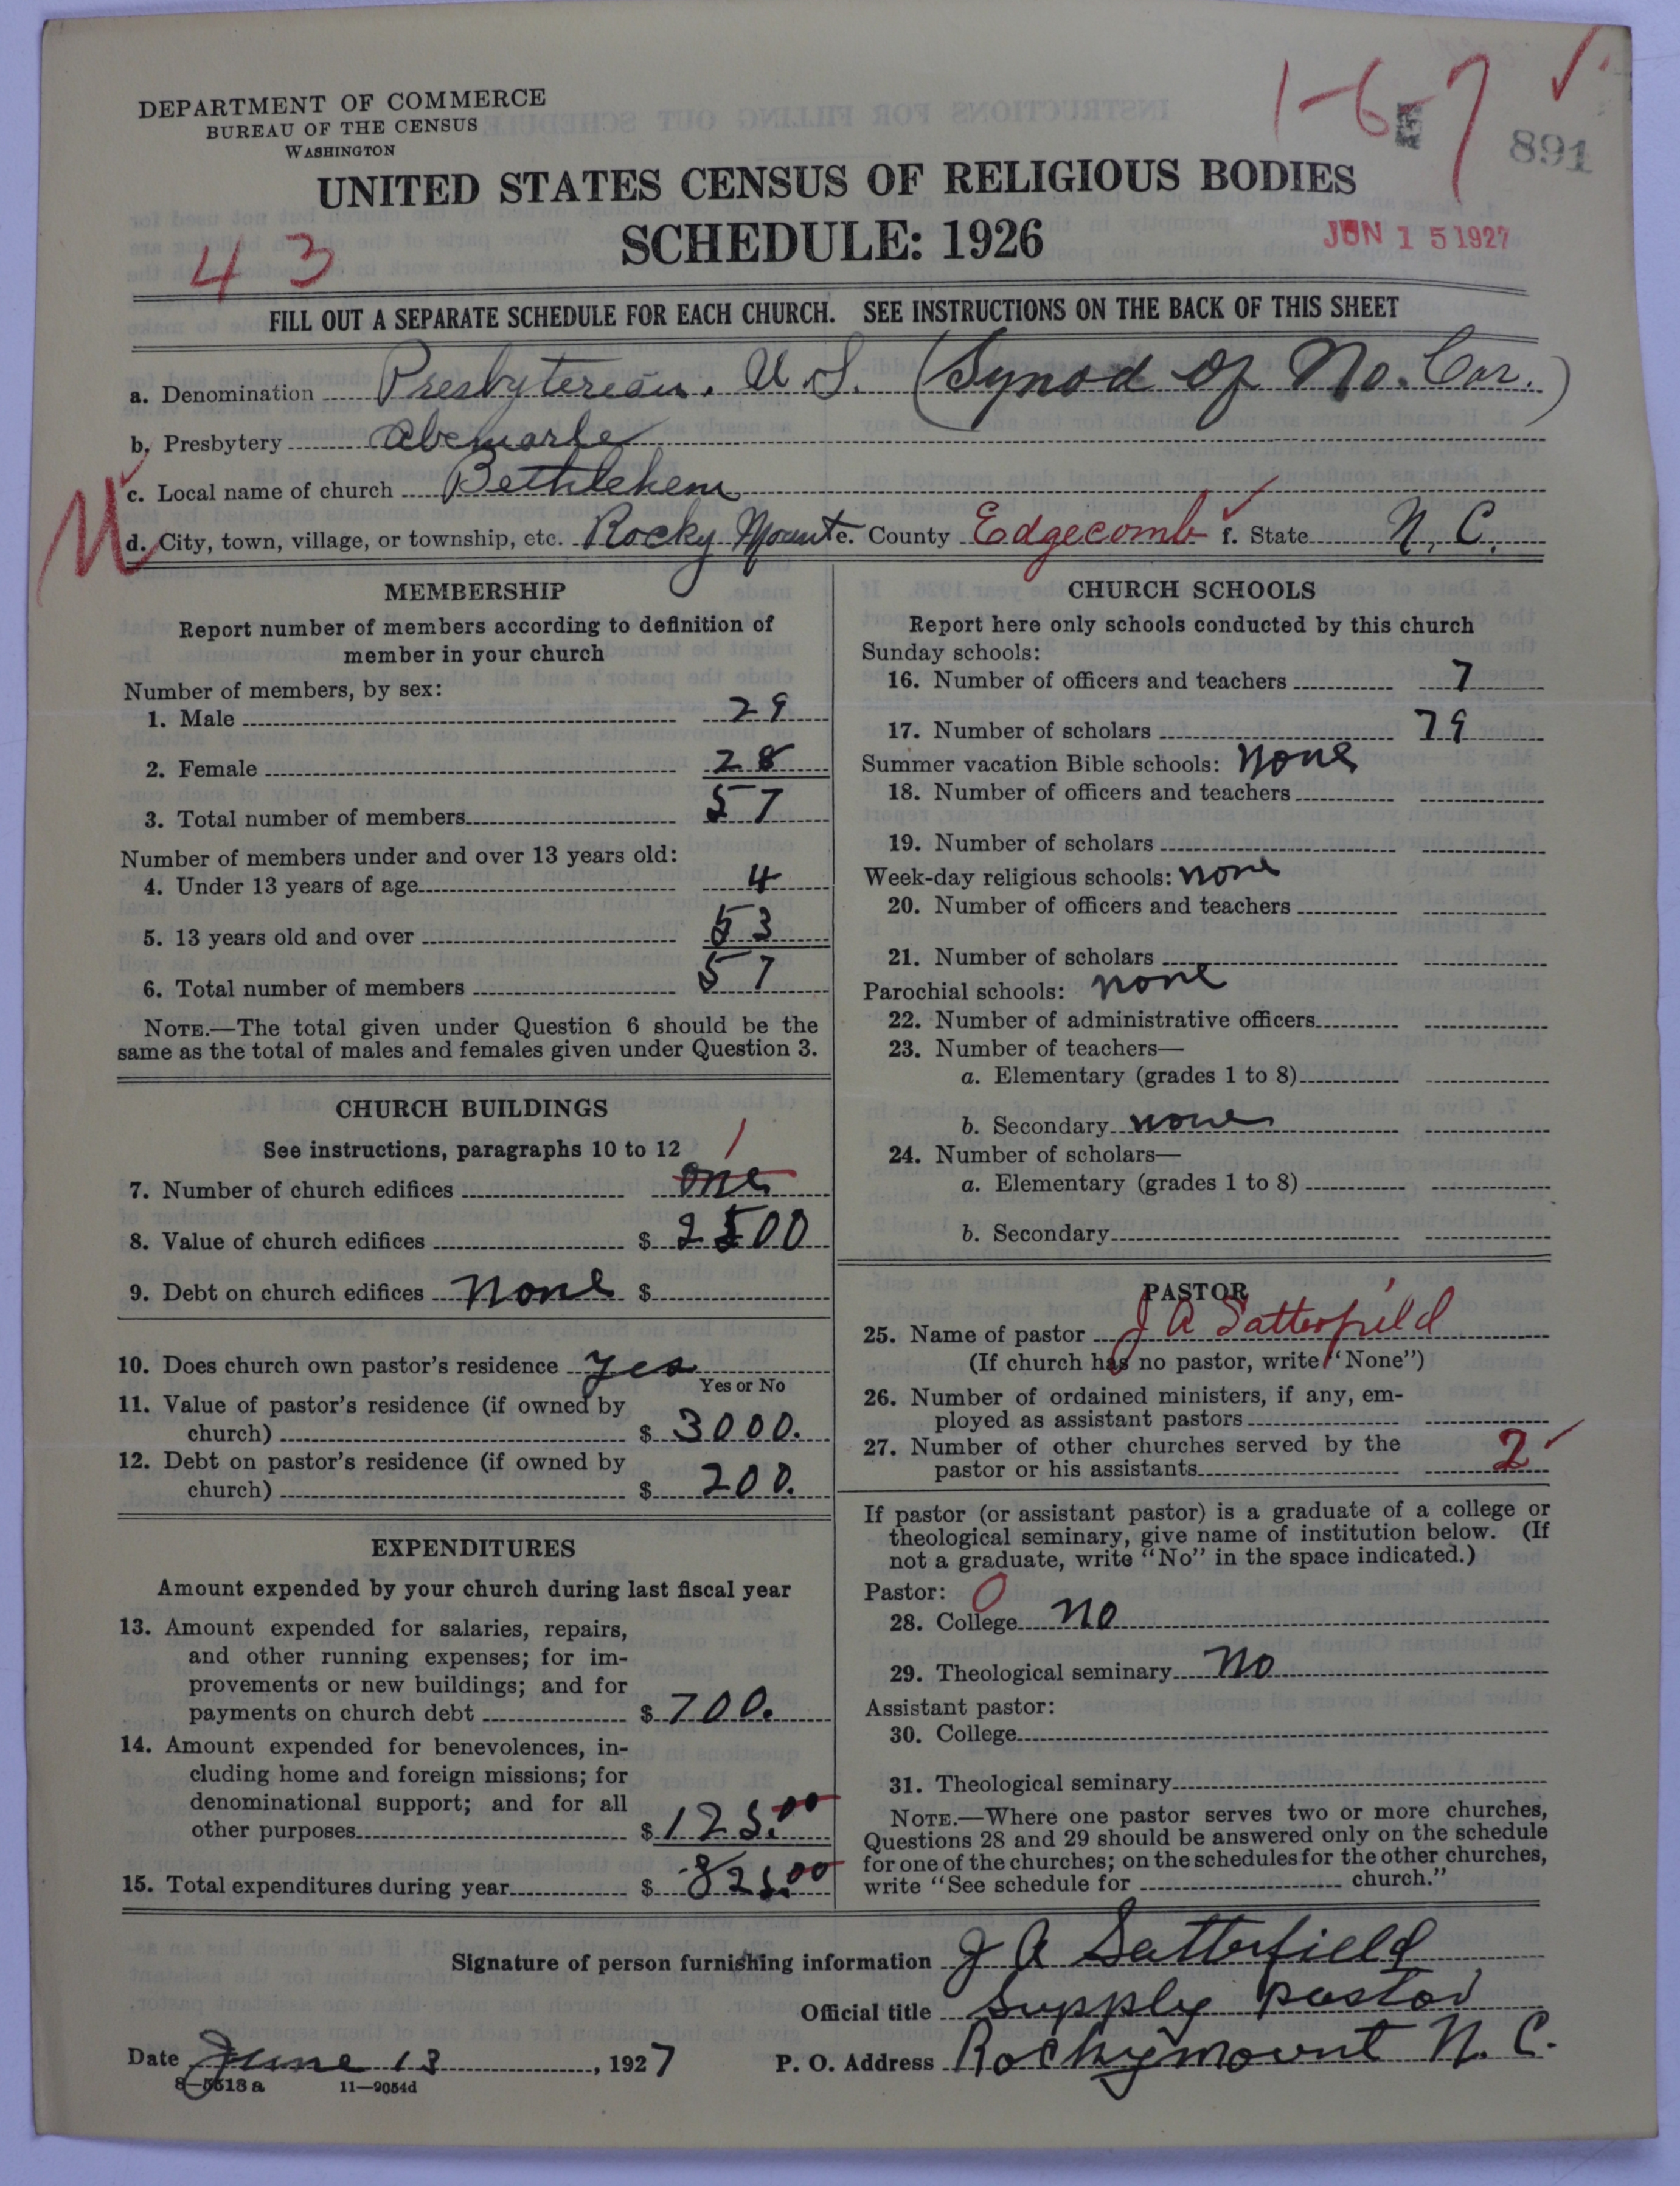 DEPARTMENT OF COMMERCE
BUREAU OF THE CENSUS
WASHINGTON
1-6-7 ✓
891
UNITED STATES CENSUS OF RELIGIOUS BODIES
SCHEDULE: 1926
JUN 15 1927
43
FILL OUT A SEPARATE SCHEDULE FOR EACH CHURCH. SEE INSTRUCTIONS ON THE BACK OF THIS SHEET
a. Denomination Presbyterian. U.S. (Synod of No. Car.)
b. Presbytery Abemarle
c. Local name of church Bethlehem
d. City, town, village, or township, etc. Rocky Mount e. County Edgecomb f. State N. C.
MEMBERSHIP
Report number of members according to definition of
member in your church
Number of members, by sex:
1. Male 29
2. Female 28
3. Total number of members 57
Number of members under and over 13 years old:
4. Under 13 years of age 4
5. 13 years old and over 53
6. Total number of members 57
NOTE.—The total given under Question 6 should be the
same as the total of males and females given under Question 3.
CHURCH BUILDINGS
See instructions, paragraphs 10 to 12
1
7. Number of church edifices one
8. Value of church edifices $ 2500
9. Debt on church edifices None $
10. Does church own pastor's residence yes
Yes or No
11. Value of pastor's residence (if owned by
church) $ 3000.
12. Debt on pastor's residence (if owned by
church) $ 200.
EXPENDITURES
Amount expended by your church during last fiscal year
13. Amount expended for salaries, repairs,
and other running expenses; for im-
provements or new buildings; and for
payments on church debt $ 700.
14. Amount expended for benevolences, in-
cluding home and foreign missions; for
denominational support; and for all
other purposes $ 125.00
15. Total expenditures during year $ 825.00
CHURCH SCHOOLS
Report here only schools conducted by this church
Sunday schools:
16. Number of officers and teachers 7
17. Number of scholars 79
Summer vacation Bible schools: none
18. Number of officers and teachers
19. Number of scholars
Week-day religious schools: none
20. Number of officers and teachers
21. Number of scholars
Parochial schools: none
22. Number of administrative officers
23. Number of teachers—
a. Elementary (grades 1 to 8)
b. Secondary none
24. Number of scholars—
a. Elementary (grades 1 to 8)
b. Secondary
PASTOR
25. Name of pastor J A Satterfield
(If church has no pastor, write "None")
26. Number of ordained ministers, if any, em-
ployed as assistant pastors
27. Number of other churches served by the
pastor or his assistants 2 ✓
If pastor (or assistant pastor) is a graduate of a college or
theological seminary, give name of institution below. (If
not a graduate, write "No" in the space indicated.)
Pastor: 0
28. College no
29. Theological seminary no
Assistant pastor:
30. College
31. Theological seminary
NOTE.—Where one pastor serves two or more churches,
Questions 28 and 29 should be answered only on the schedule
for one of the churches; on the schedules for the other churches,
write "See schedule for church."
Signature of person furnishing information J A Satterfield
Official title Supply pastor
Date June 13, 1927 P. O. Address Rockymount N. C.
8—5513a 11—9054d